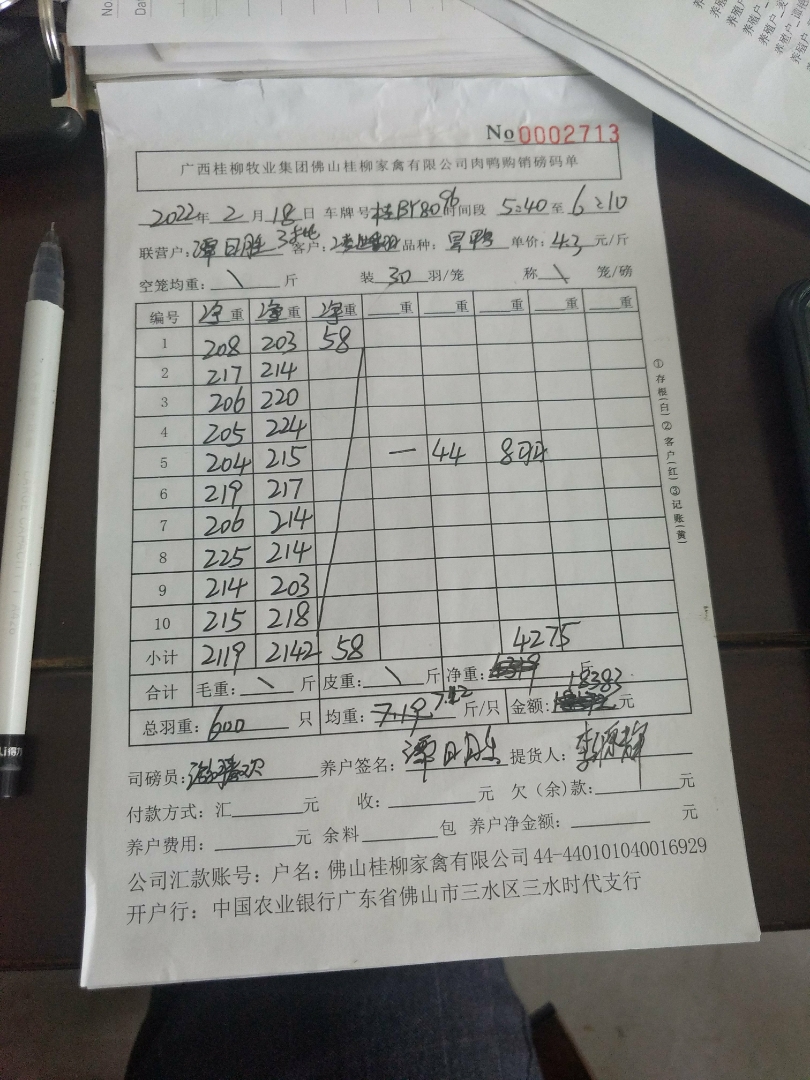 No 0002713
广西桂柳牧业集团佛山桂柳家禽有限公司肉鸭购销磅码单
2022年 2月 18日 车牌号 桂BY8096 时间段 5:40 至 6:10
联营户: 谭日胜 3批 客户: 品种: 单价: 4.3 元/斤
空笼均重: \ 斤 装 30 羽/笼 称 \ 笼/磅
编号 净重 净重 净重 重 重 重 重 重
1 208 203 58
2 217 214
3 206 220
4 205 224
5 204 215 — 44 8羽
6 219 217
7 206 214
8 225 214
9 214 203
10 215 218
小计 2119 2142 58 4275
合计 毛重: \ 斤 皮重: \ 斤 净重: 斤
总羽重: 600 只 均重: 7.19 7.12 斤/只 金额: 18383 元
司磅员: 养户签名: 谭日胜 提货人:
付款方式: 汇 元 收: 元 欠(余)款: 元
养户费用: 元 余料 包 养户净金额: 元
公司汇款账号: 户名: 佛山桂柳家禽有限公司 44-440101040016929
开户行: 中国农业银行广东省佛山市三水区三水时代支行
①存根(白)②客户(红)③记账(黄)